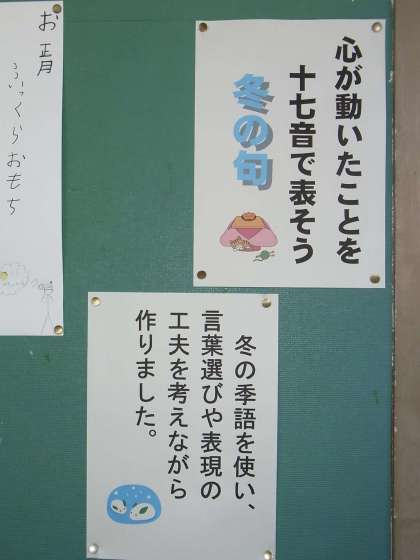 心が動いたことを
十七音で表そう
冬の句
冬の季語を使い、
言葉選びや表現の
工夫を考えながら
作りました。
お正月
ぷっくらおもち